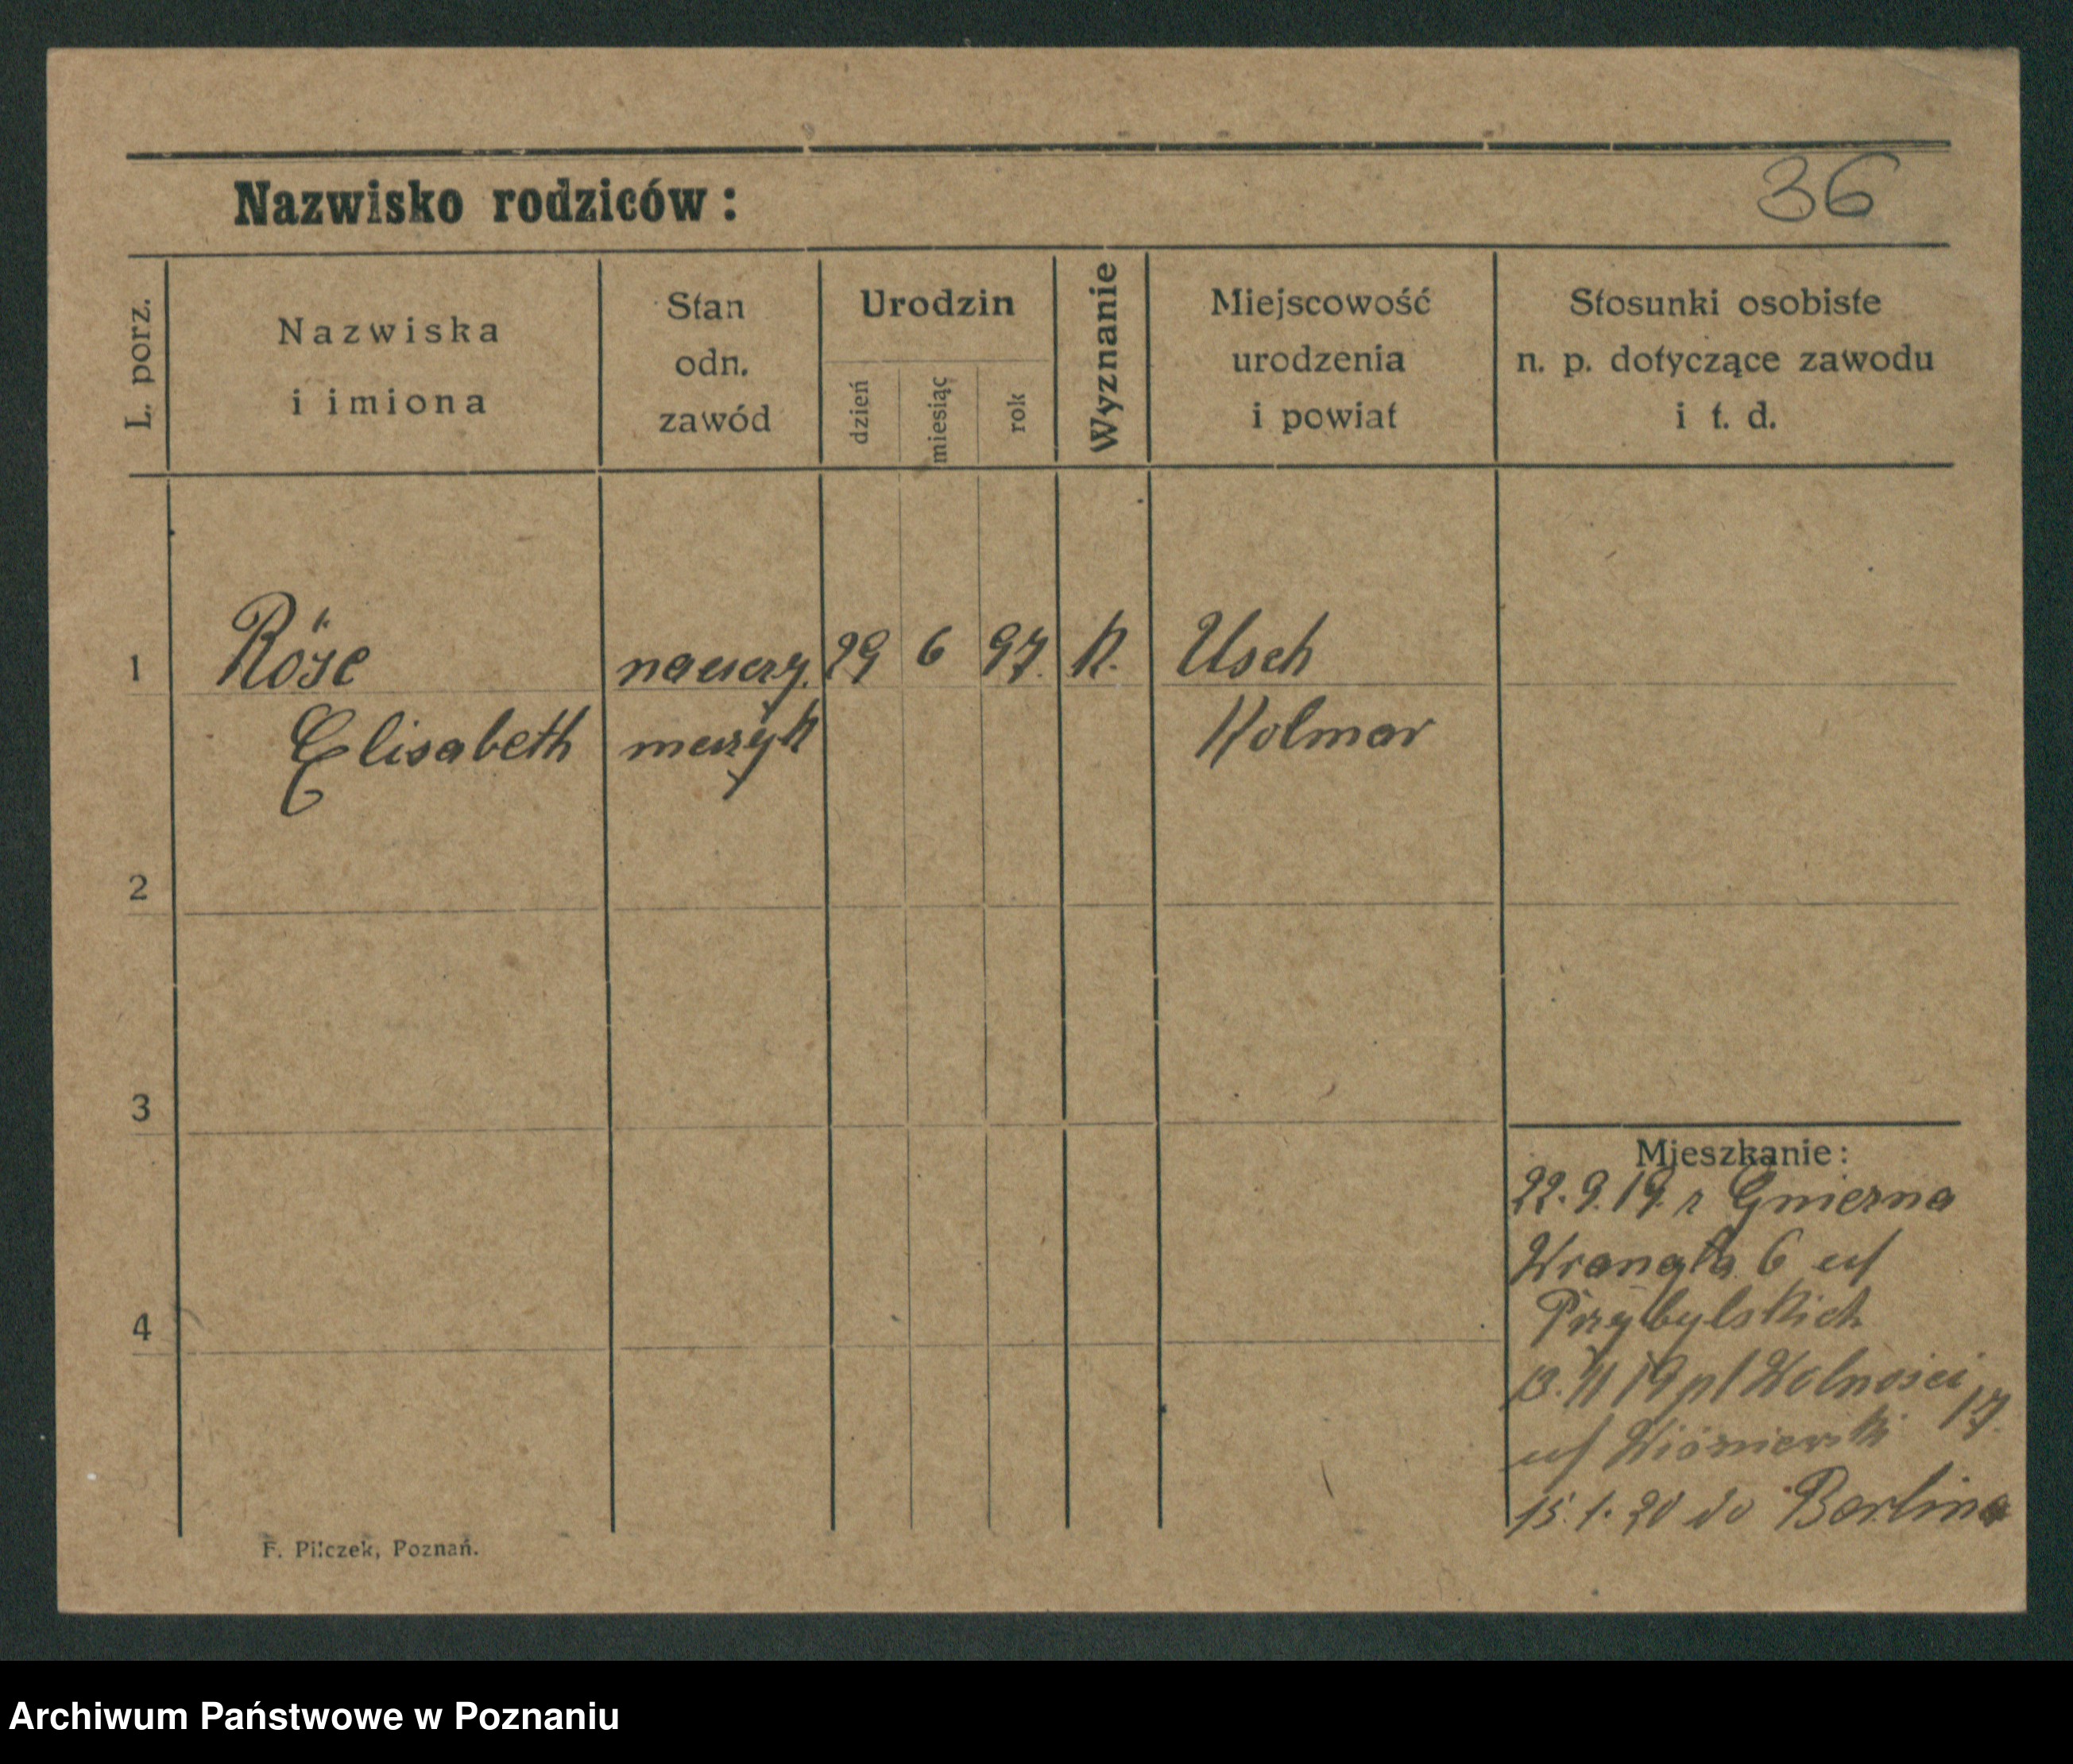 36
Nazwisko rodziców:
L. porz.
Nazwiska
i imiona
Stan
odn.
zawód
Urodzin
dzień
miesiąc
rok
Wyznanie
Miejscowość
urodzenia
i powiat
Stosunki osobiste
n. p. dotyczące zawodu
i t. d.
1 Röse nauczy. 29 6 97. K. Usch
Elisabeth muzyk Kolmar
2
3
4
Mieszkanie:
22.9.19. z Gniezna
Wrangla 6 u/
Przybylskich
19 pl Wolności 17.
u/ Wiśniewski
15.1.20 do Berlina
F. Pilczek, Poznań.
Archiwum Państwowe w Poznaniu